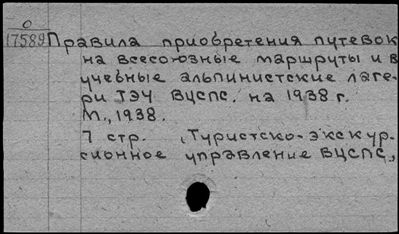 О
17589 Правила приобретения путевок
на всесоюзные маршруты и в
учебные альпинистские лаге-
ри ТЭУ ВЦСПС. на 1938 г.
М., 1938.
7 стр. (Туристско-экскур-
сионное управление ВЦСПС.,